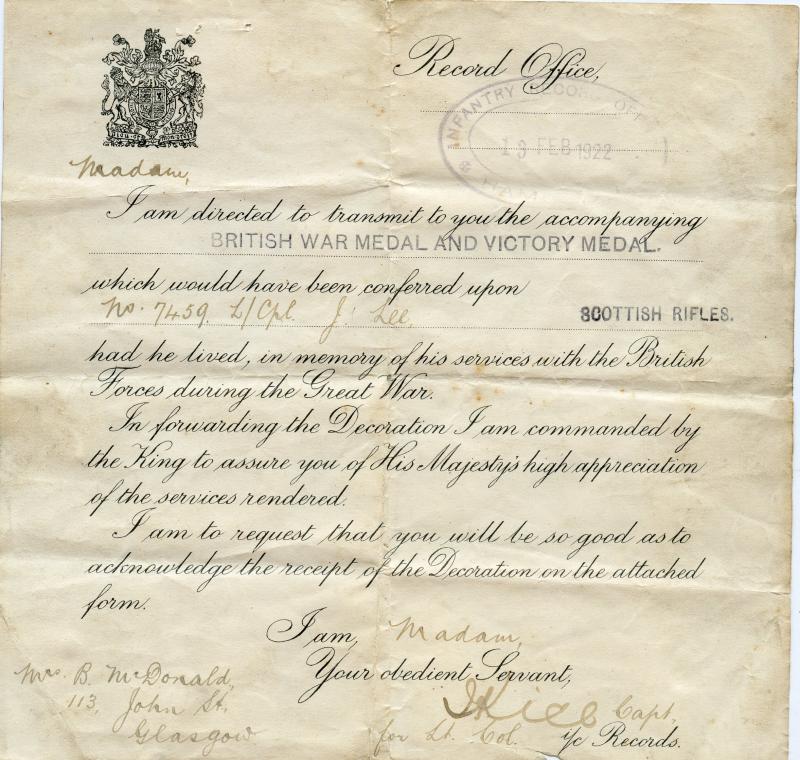 Record Office,
INFANTRY RECORD OFF
13 FEB 1922
HAM
Madam,
I am directed to transmit to you the accompanying
BRITISH WAR MEDAL AND VICTORY MEDAL.
which would have been conferred upon
No. 7459 L/Cpl. J. Lee,
SCOTTISH RIFLES.
had he lived, in memory of his services with the British
Forces during the Great War.
In forwarding the Decoration I am commanded by
the King to assure you of His Majesty's high appreciation
of the services rendered.
I am to request that you will be so good as to
acknowledge the receipt of the Decoration on the attached
form.
I am, Madam,
Your obedient Servant,
Capt.
for Lt. Col. i/c Records.
Mrs. B. McDonald,
113, John St.,
Glasgow